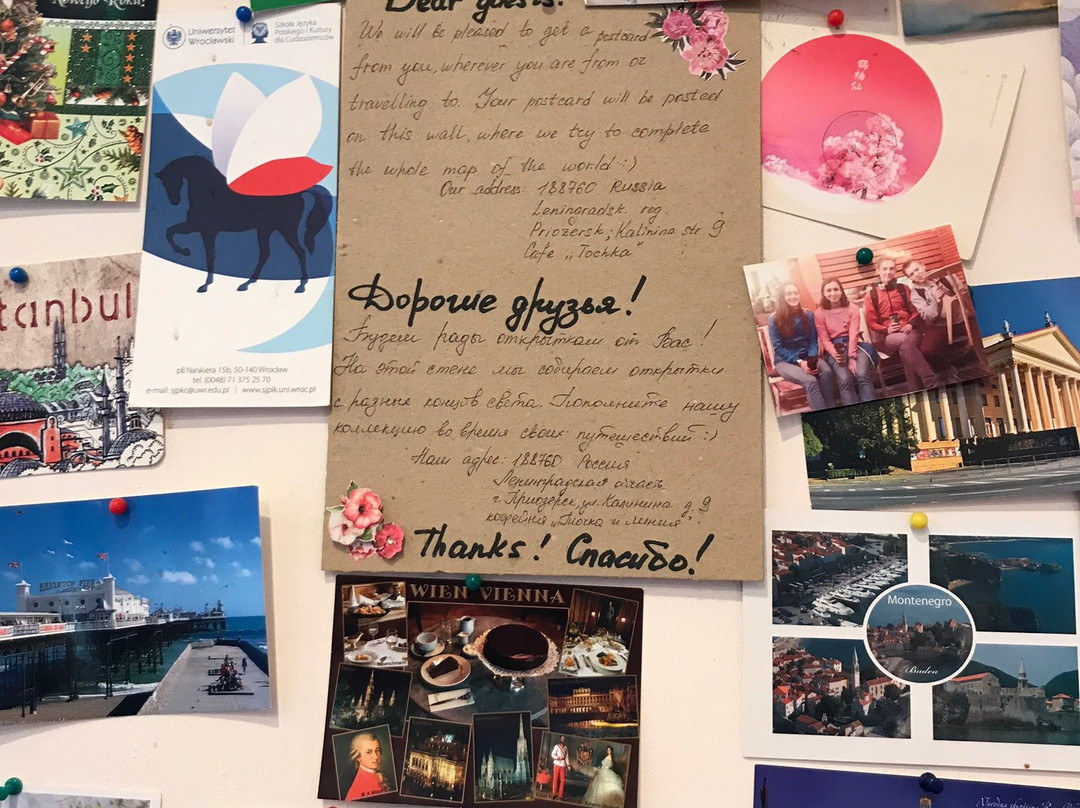 Nowego Roku!
Uniwersytet
Wrocławski
Szkoła Języka
Polskiego i Kultury
dla Cudzoziemców
pl. Nankiera 15b, 50-140 Wrocław
tel. (0048) 71 375 25 70
e-mail: sjpkc@uwr.edu.pl | www.sjpik.uni.wroc.pl
Dear guests!
We will be pleased to get a postcard
from you, wherever you are from or
travelling to. Your postcard will be posted
on this wall, where we try to complete
the whole map of the world :)
Our address: 188760 Russia
Leningradsk. reg.
Priozersk, Kalinina str. 9
Cafe „Tochka"
Дорогие друзья!
Будем рады открыткам от Вас!
На этой стене мы собираем открытки
с разных концов света. Пополните нашу
коллекцию во время своих путешествий :)
Наш адрес: 188760 Россия
Ленинградская область
г. Приозерск, ул. Калинина д. 9
кофейня „Точка и линия"
Thanks! Спасибо!
tanbul
BRIGHTON PIER
WIEN VIENNA
Montenegro
Budva